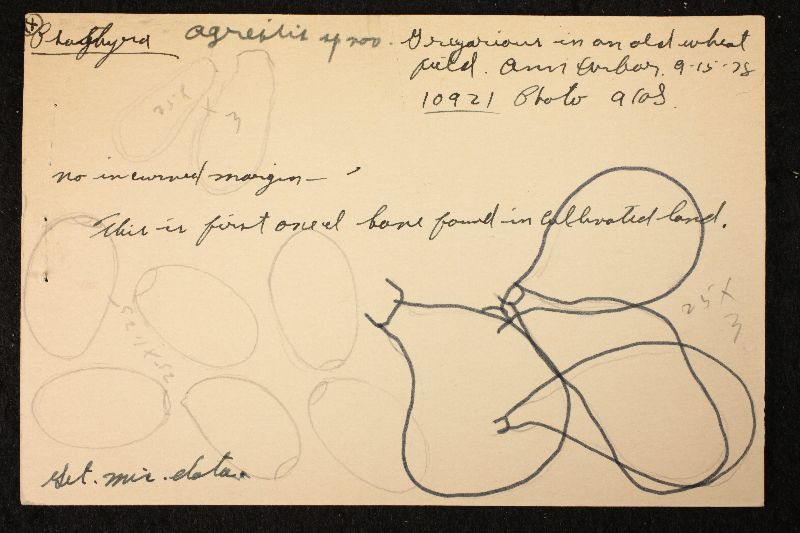 Psathyra agrestis sp nov. Gregarious in an old wheat
field. Ann Arbor. 9-15-28
10921 Photo
25 X 3
no incurved margin —
This is first one I have found in Cultivated land.
25 X
3
Get. mic. data.